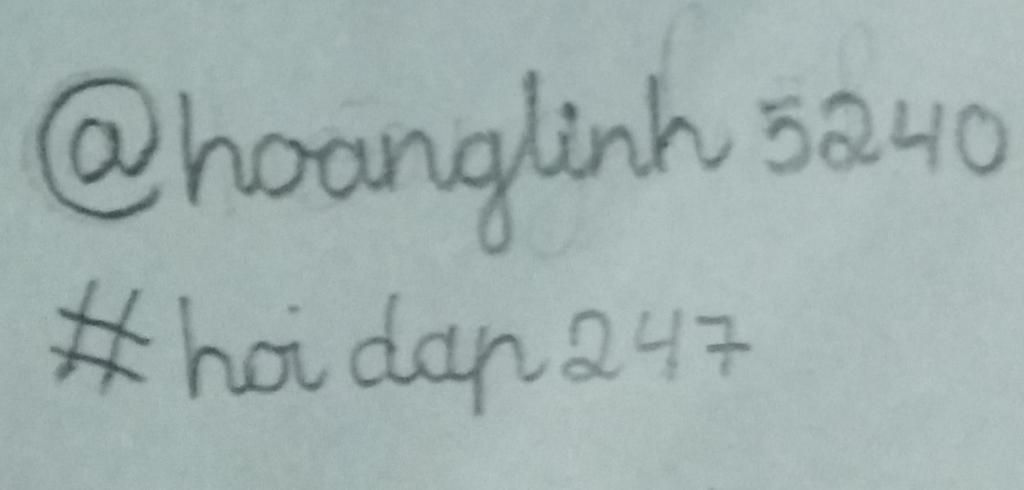 @hoanglinh5240
#hoidap247